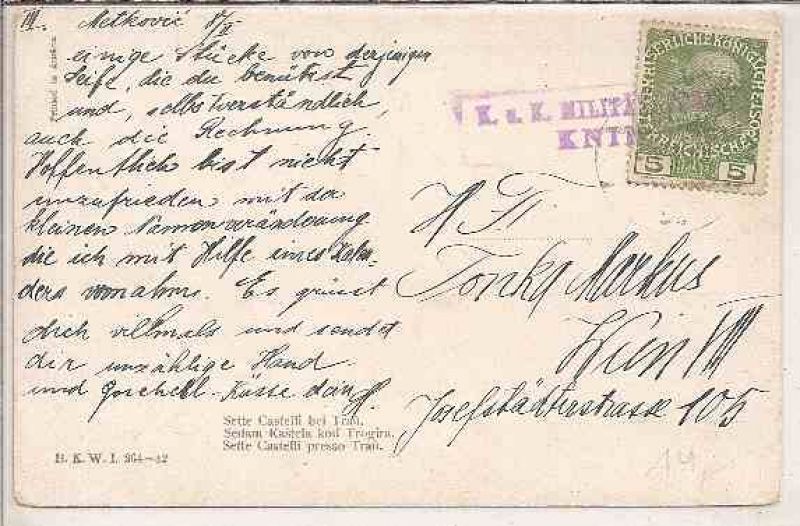 III. Metković 8/II
einige Stücke von derjenigen
Seife, die du benützst
und, selbstverständlich,
auch die Rechnung.
Hoffentlich bist nicht
unzufrieden mit der
kleinen Namenveränderung
die ich mit Hilfe eines Kalen-
ders vornahm. Es grüsst
dich villmals und sendet
dir unzählige Hand
und Küsse dein
K. u. K. MILIT
KNIN
KAISERLICHE KÖNIGLICHE
5 5
Tonka Markus
Wien VIII
Josefstädterstrasse 105
Sette Castelli bei Trau.
Sedam Kaštela kod Trogira.
Sette Castelli presso Trau.
B. K. W. I. 964-42